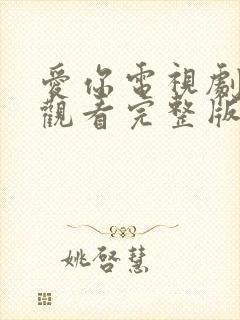 愛你電視劇
觀看完整版
姚啓慧